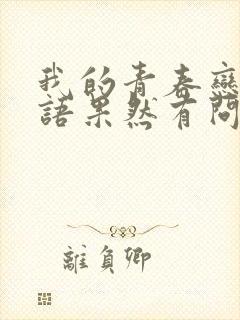 我的青春戀
語果然有問
離負卿